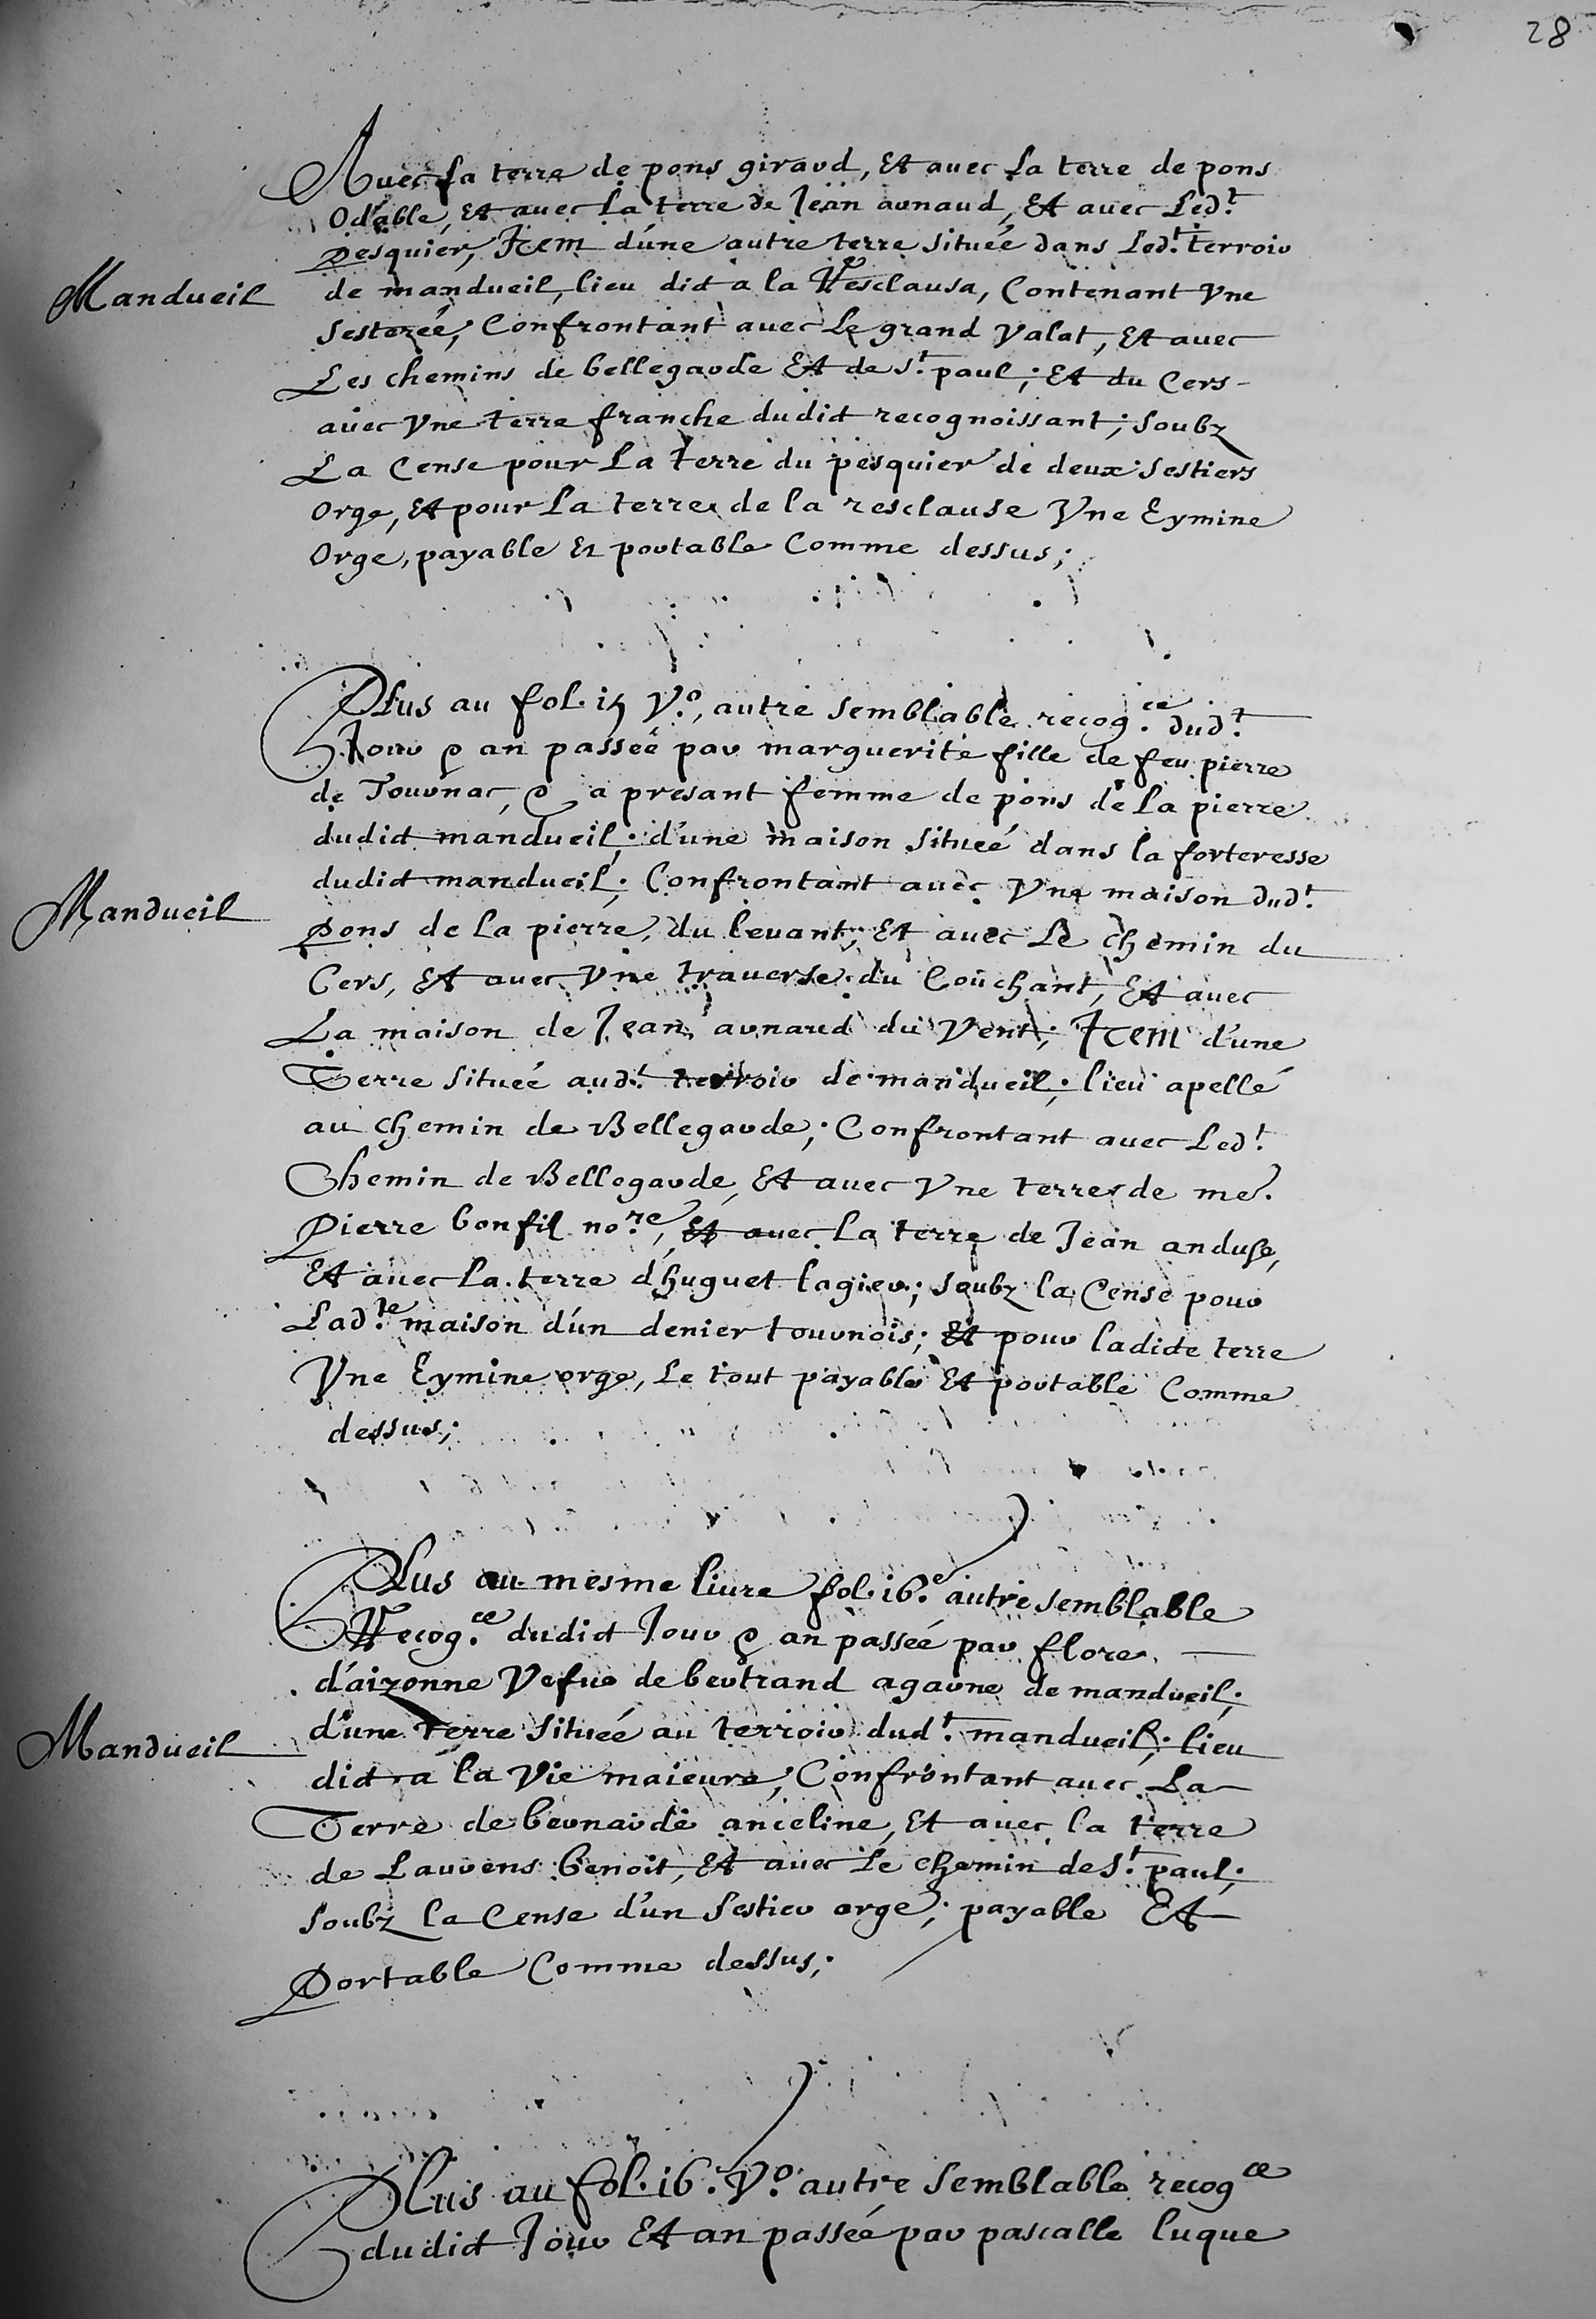 28
Auec la terre de pons giraud, Et auec la terre de pons
Odable, Et auec la terre de Jean arnaud, Et auec Led.t
pesquier, Item d'une autre terre située dans Led.t terroir
Mandueil
de mandueil, lieu dit a la Resclausa, Contenant Vne
sesterée, Confrontant auec le grand Valat, Et auec
Les chemins de bellegarde Et de s.t paul; Et du Cers -
auec Vne terre franche dudit recognoissant; soubz
La Cense pour la terre du pesquier de deux sestiers
Orge, Et pour la terre de la resclause Vne Eymine
Orge, payable Et portable Comme dessus;
Plus au fol. 15 V.o, autre semblable recog.ce dud.t
Jour & an passée par marguerite fille de feu pierre
de Tournac, & a presant femme de pons de la pierre
dudit mandueil; d'une maison située dans la forteresse
dudit mandueil; Confrontant auec Vne maison dud.t
Mandueil
pons de la pierre, du leuant, Et auec Le chemin du
Cers, Et auec Vne trauerse du Couchant, Et auec
La maison de Jean arnaud du Vent; Item d'une
Terre située aud.t terroir de mandueil; lieu apellé
au chemin de Bellegarde; Confrontant auec Led.t
Chemin de Bellegarde, Et auec Vne terre de me.
Pierre bonfil no.re, Et auec la terre de Jean anduse,
Et auec la terre d'huguet lagier; soubz la Cense pour
Lad.te maison d'un denier tournois; Et pour ladite terre
Vne Eymine orge, Le tout payable Et portable Comme
dessus;
Plus au mesme liure fol. 16.e autre semblable
Recog.ce dudit Jour & an passée par flore
d'aizonne Vefue de bertrand agarne de mandueil;
d'une terre située au terroir dud.t mandueil; lieu
Mandueil
dit a la Vie maieure; Confrontant auec La
Terre de bernarde anceline, Et auec la terre
de Laurens benoit, Et auec Le chemin de s.t paul;
soubz la Cense d'un sestier orge; payable Et
Portable Comme dessus;
Plus au fol. 16. V.o autre semblable recog.ce
dudit Jour Et an passée par pascalle luque